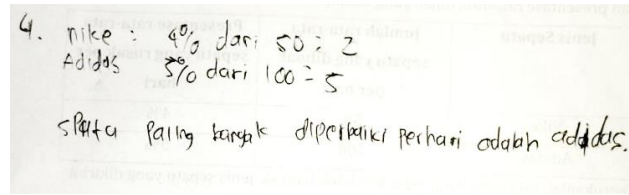 4. nike : 4% dari 50 = 2
Adidas 5% dari 100 = 5
spatu paling banyak diperbaiki perhari adalah adidas.